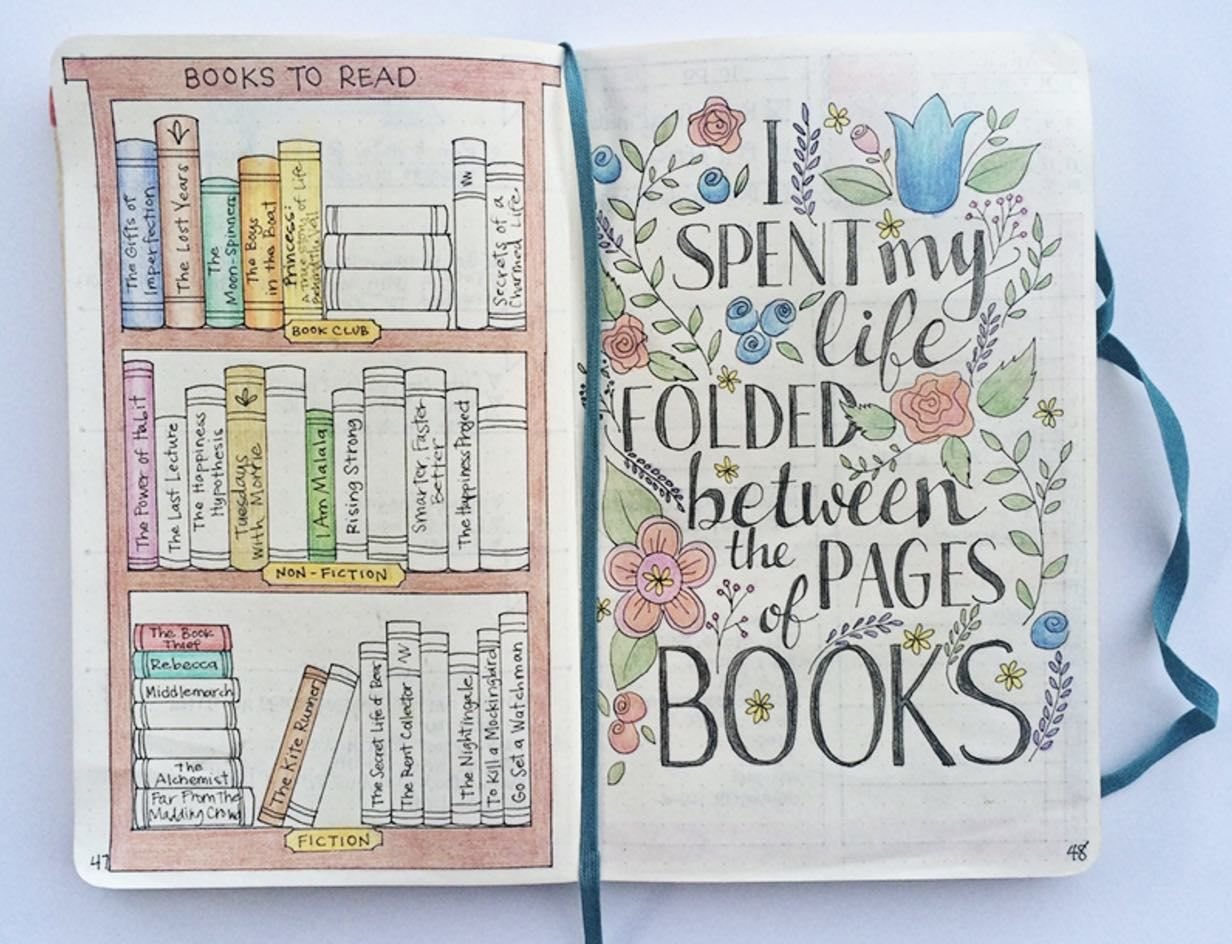 BOOKS TO READ
The Gifts of
Imperfection
The Lost Years
The
Moon-Spinners
The Boys
in the Boat
Princess:
A True Story of Life
Behind the Veil
Secrets of a
Charmed Life
BOOK CLUB
The Power of Habit
The Last Lecture
The Happiness
Hypothesis
Tuesdays
With Morrie
I Am Malala
Rising Strong
Smarter, Faster
Better
The Happiness Project
NON-FICTION
The Book
Thief
Rebecca
Middlemarch
The
Alchemist
Far From The
Madding Crowd
The Kite Runner
The Secret Life of Bees
The Rent Collector
The Nightingale
To Kill a Mockingbird
Go Set a Watchman
FICTION
47
I
SPENT my
life
FOLDED
between
the PAGES
of
BOOKS
48